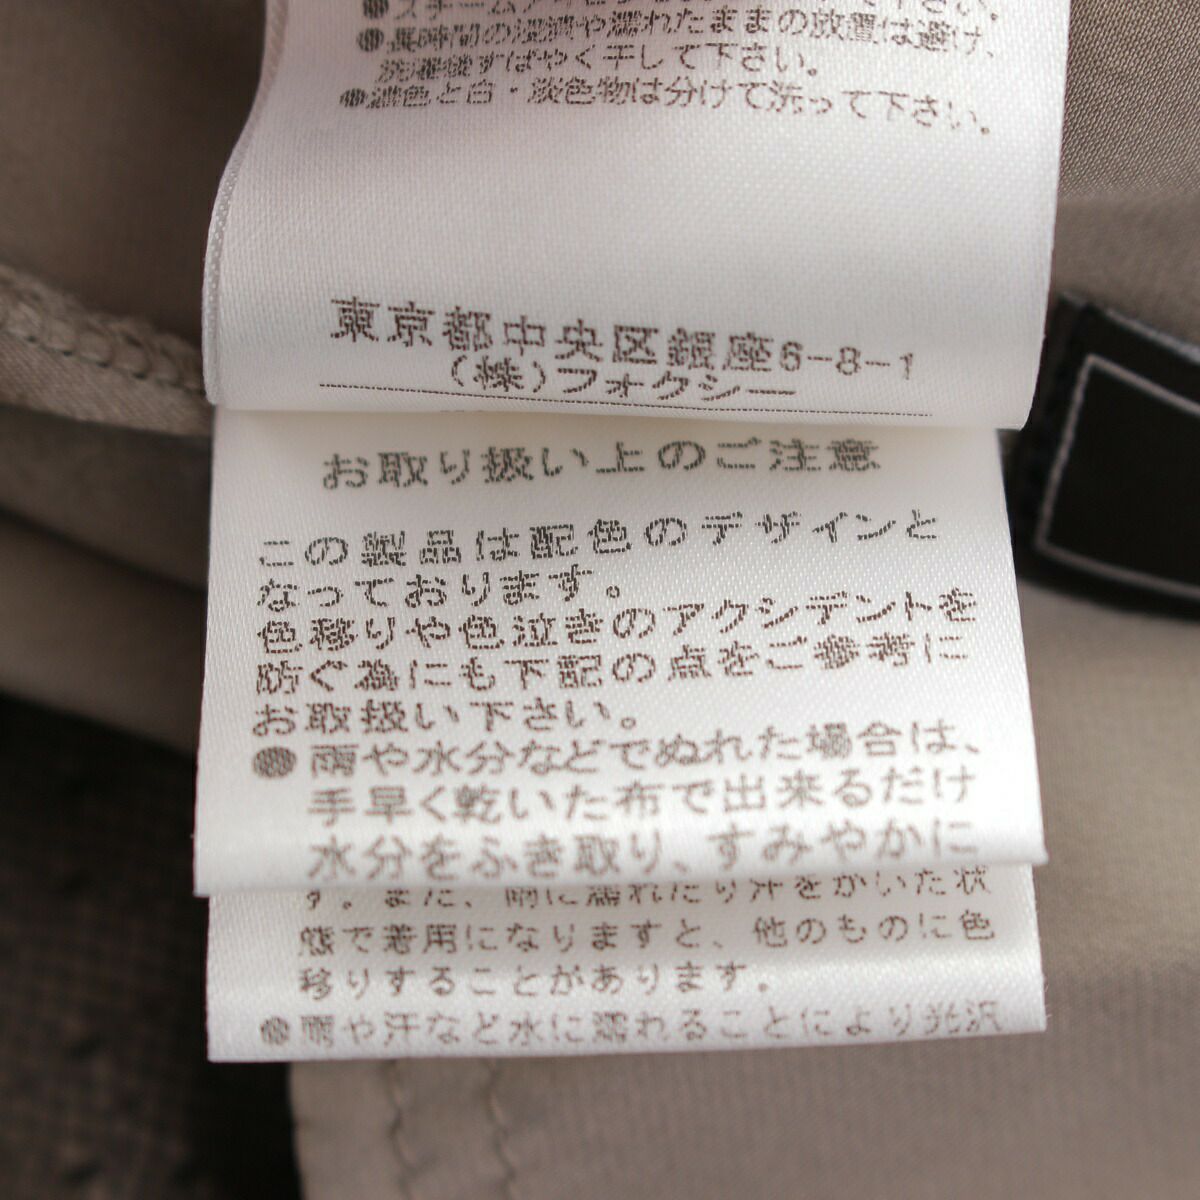 ●長時間の浸漬や濡れたままの放置は避け、
洗濯後すばやく干して下さい。
●濃色と白・淡色物は分けて洗って下さい。
東京都中央区銀座6-8-1
(株)フォクシー
お取り扱い上のご注意
この製品は配色のデザインと
なっております。
色移りや色泣きのアクシデントを
防ぐ為にも下記の点をご参考に
お取扱い下さい。
●雨や水分などでぬれた場合は、
手早く乾いた布で出来るだけ
水分をふき取り、すみやかに
す。また、雨に濡れたり汗をかいた状
態で着用になりますと、他のものに色
移りすることがあります。
●雨や汗など水に濡れることにより光沢